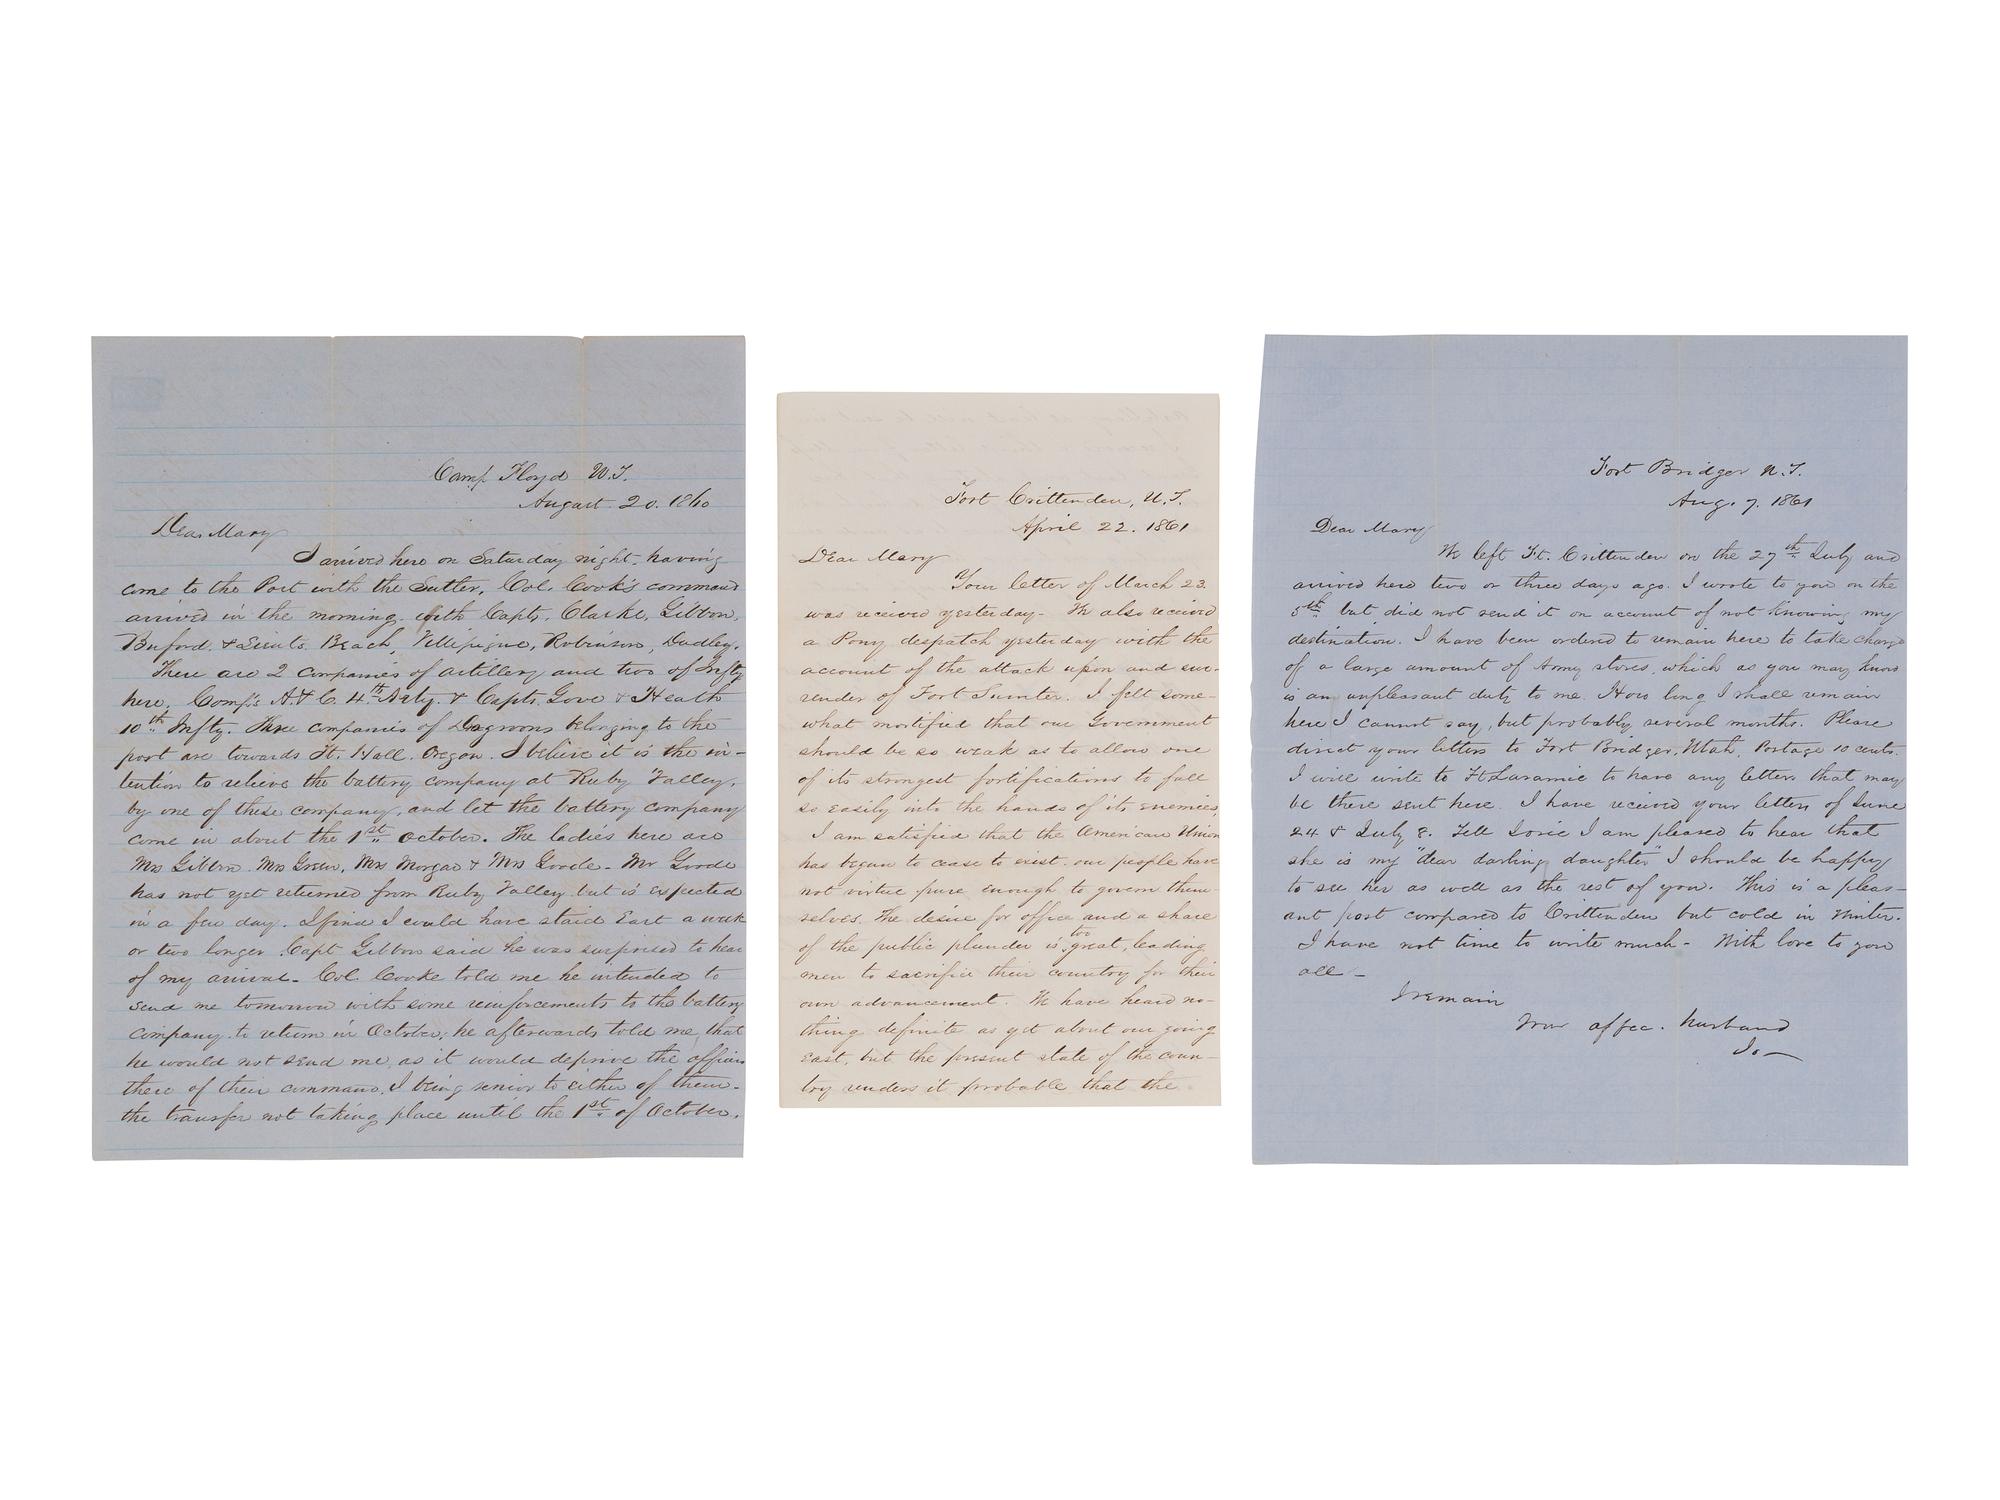 Camp Floyd U.T.
August 20. 1860
Dear Mary
I arrived here on Saturday night, having
come to the Post with the Sutler. Col. Cook's command
arrived in the morning, with Capts. Clarke, Gibbon,
Buford & Lieuts. Beach, Villepigue, Robinson, Dudley.
There are 2 companies of artillery and two of Infty
here. Comp's A & C. 4th Arty. & Capts. Gove & Heath
10th Infty. Three companies of Dragoons belonging to the
post are towards Ft. Hall. Oregon. I believe it is the in-
tention to relieve the battery company at Ruby Valley,
by one of these company, and let the battery company
come in about the 1st October. The ladies here are
Mrs Gibbon. Mrs Green, Mrs Morgan & Mrs Goode - Mr Goode
has not yet returned from Ruby Valley but is expected
in a few day. I find I could have staid East a week
or two longer. Capt Gibbon said he was surprised to hear
of my arrival - Col. Cooke told me he intended to
send me tomorrow with some reinforcements to the battery
company. to return in October; he afterwards told me that
he would not send me, as it would deprive the officers
there of their command, I being senior to either of them -
the transfer not taking place until the 1st of October.
Fort Crittenden, U.T.
April 22. 1861
Dear Mary
Your letter of March 23.
was received yesterday - We also received
a Pony despatch yesterday with the
account of the attack upon and sur-
render of Fort Sumter. I felt some-
what mortified that our Government
should be so weak as to allow one
of its strongest fortifications to fall
so easily into the hands of its enemies,
I am satisfied that the American Union
has began to cease to exist. our people have
not virtue pure enough to govern them-
selves. The desire for office and a share
of the public plunder is too great, leading
men to sacrifice their country for their
own advancement. We have heard no-
thing definite as yet about our going
East, but the present state of the coun-
try renders it probable that the
Fort Bridger U.T.
Aug. 7. 1861
Dear Mary
We left Ft. Crittenden on the 27th July and
arrived here two or three days ago. I wrote to you on the
5th but did not send it on account of not knowing my
destination. I have been ordered to remain here to take charge
of a large amount of Army stores, which as you may know
is an unpleasant duty to me. How long I shall remain
here I cannot say, but probably several months. Please
direct your letters to Fort Bridger, Utah, Postage 10 cents.
I will write to Ft Laramie to have any letters that may
be there sent here. I have received your letters of June
24 & July 8. Tell Josie I am pleased to hear that
she is my "dear darling daughter" I should be happy
to see her as well as the rest of you. This is a pleas-
ant post compared to Crittenden but cold in Winter.
I have not time to write much - With love to you
all -
I remain
Your affec. husband
Jo -